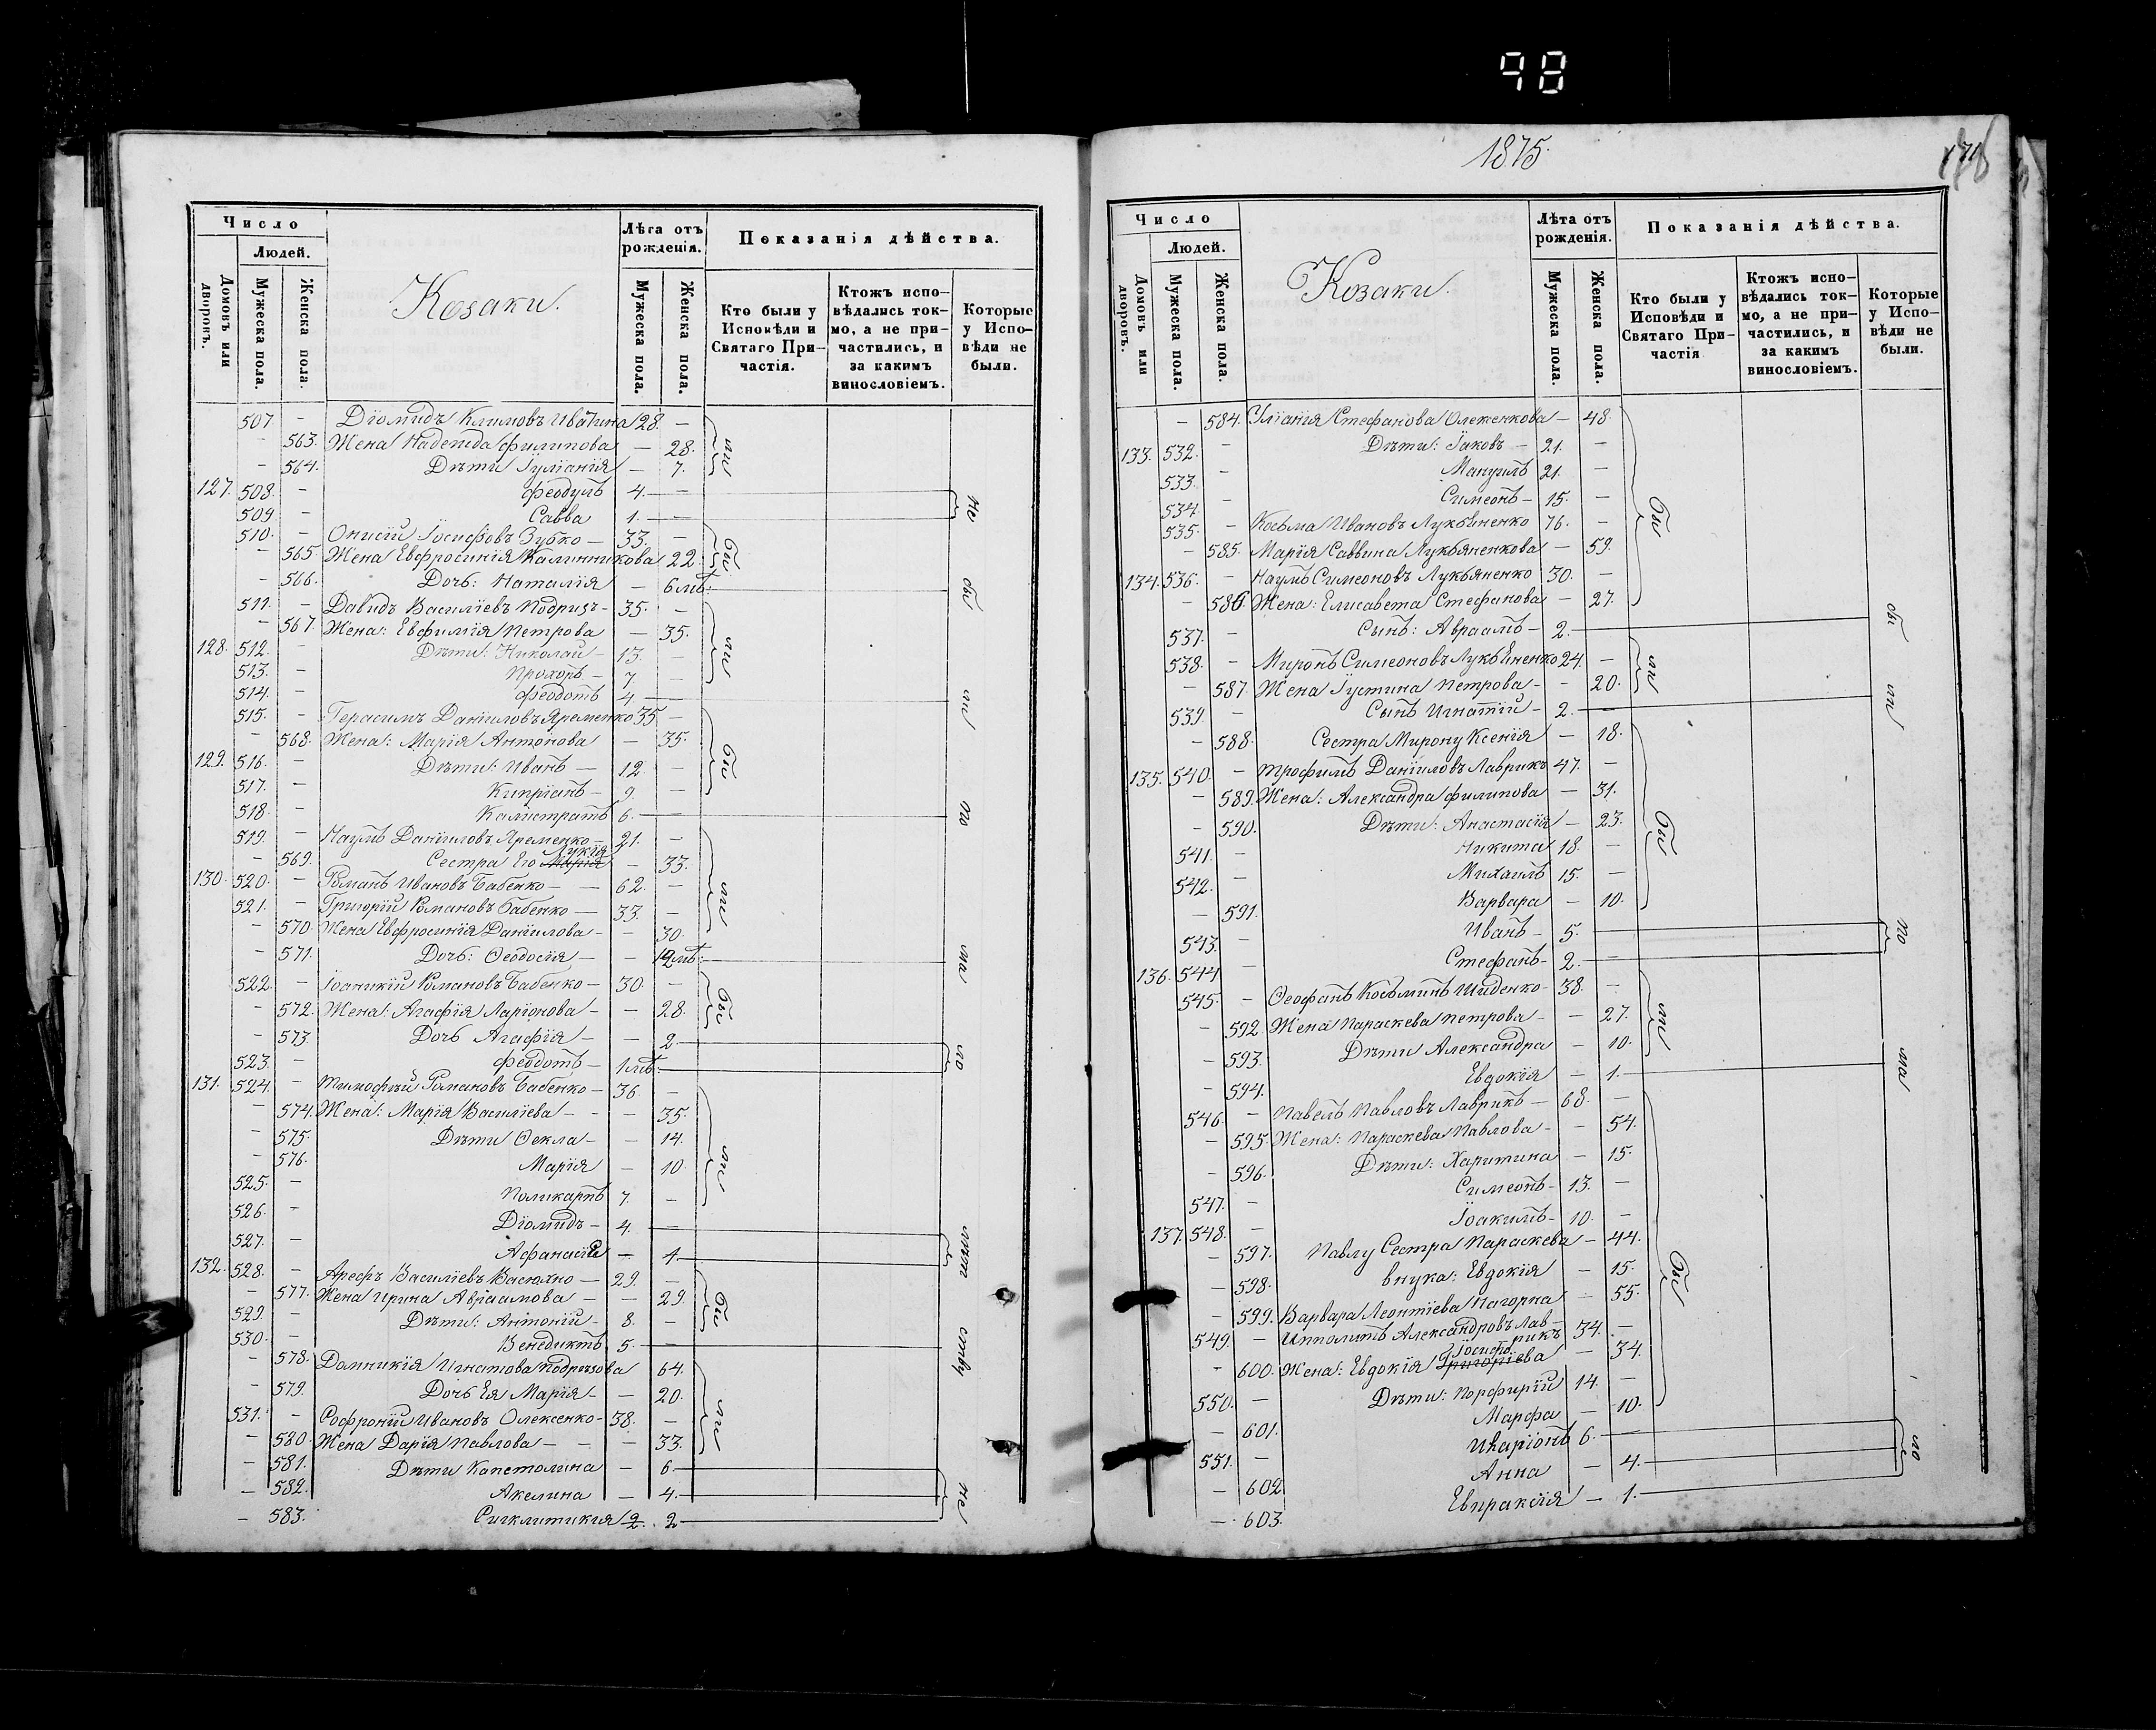 98
Число
Людей.
Домовъ или дворовъ.
Мужеска пола.
Женска пола.
Козаки.
Лѣта отъ рожденія.
Мужеска пола.
Женска пола.
Показанія дѣйства.
Кто были у Исповѣди и Святаго Причастія.
Ктожъ исповѣдались токмо, а не причастились, и за какимъ винословіемъ.
Которые у Исповѣди не были.
507 - Діомидъ Климовъ 28. -
- 563. Жена Надежда Филипова - 28.
- 564. Дѣти Іуліанія - 7.
127. 508. - Феодулъ 4. -
509 - Савва 1. -
510. - Онисій Іосифовъ Зубко - 33. -
- 565. Жена Евфросинія Калинникова 22.
- 566. Дочь: Наталія - 6 мѣ:
511. - Давидъ Василіевъ 35. -
- 567. Жена: Евфимія Петрова - 35.
128. 512. - Дѣти: Николай - 13. -
513. - Прохоръ - 7 -
514. - Феодотъ 4 -
515. - Герасимъ Даніиловъ Яременко 35 -
- 568. Жена: Марія Антонова - 35.
129. 516. - Дѣти: Иванъ - 12 -
517. - Кипріанъ - 9. -
518. - Калистратъ 6. -
519. - Наумъ Даніиловъ Яременко - 21. -
- 569. Сестра Его Лукія - 33.
130. 520. - Романъ Ивановъ Бабенко - 62. -
521. - Григорій Романовъ Бабенко - 33. -
- 570. Жена Евфросинія Даніилова - - 30.
- 571. Дочь: Феодосія - - мѣ:
522. - Іоаникій Романовъ Бабенко - 30. -
- 572. Жена: Агафія Ларіонова - - 28.
- 573 Дочь Агафія - - 2.
523. - Феодотъ - 1 мѣ:
131. 524. - Тимофѣй Романовъ Бабенко - 36. -
- 574. Жена: Марія Василіева - - - 35.
- 575. Дѣти Фекла - - 14.
- 576. Марія - 10.
525. - Поликарпъ 7. -
526. - Діомидъ - 4. -
527. - Афанасій - 4
132. 528. - Арефъ Василіевъ Васюхно - 29. -
- 577. Жена Ирина Авраамова - - 29.
529. - Дѣти: Антоній - 8. -
530. - Венедиктъ 5. -
- 578. Домникія Игнатова 64.
- 579. Дочь Ея Марія - - 20.
531. - Софроній Ивановъ Олексенко - 38. -
- 580. Жена Дарія Павлова - - - 33.
- 581. Дѣти Капетолина - 6.
- 582. Акелина - 4.
- 583. Сигклитикія 2. 2
1875.
Число
Людей.
Домовъ или дворовъ.
Мужеска пола.
Женска пола.
Козаки.
Лѣта отъ рожденія.
Мужеска пола.
Женска пола.
Показанія дѣйства.
Кто были у Исповѣди и Святаго Причастія
Ктожъ исповѣдались токмо, а не причастились, и за какимъ винословіемъ.
Которые у Исповѣди не были.
- 584. Стефанова - 48.
133. 532. - Дѣти: Іаковъ - 21. -
533. - Мануилъ 21. -
534 - Симеонъ - 15. -
535. - Косьма Ивановъ Лукьяненко 76. -
- 585. Марія Саввина Лукьяненкова - 59.
134. 536. - Наумъ Симеоновъ Лукьяненко 30. -
- 586. Жена: Елисавета Стефанова - 27.
537. - Сынъ: Авраамъ - 2. -
538. - Миронъ Симеоновъ Лукьяненко 24. -
- 587. Жена Іустина Петрова - - 20.
539. - Сынъ Игнатій - 2. -
- 588. Сестра Мирону Ксенія - 18.
135. 540. - Трофимъ Даніиловъ Лаврикъ 47. -
- 589. Жена: Александра Филипова - 31.
- 590. Дѣти: Анастасія - 23.
541. - Никита 18. -
542. - Михаилъ 15. -
- 591. Варвара - 10.
543. - Иванъ - 5. -
136. 544 - Стефанъ - 2. -
545. - Феофанъ Косьминъ Шиденко - 38. -
- 592. Жена Параскева Петрова - - 27.
- 593. Дѣти Александра - 10.
- 594. Евдокія - 1.
546. - Павелъ Павловъ Лаврикъ - 68. -
- 595. Жена: Параскева Павлова - - 54.
- 596. Дѣти: Харитина - 15.
547. - Симеонъ - 13. -
137. 548. - Іоакимъ - 10. -
- 597. Павлу Сестра Параскева - 44.
- 598. внука: Евдокія - 15.
- 599. Варвара Леонтіева Нагорна - 55.
549. - Ипполитъ Александровъ Лаврикъ 34. -
- 600. Жена: Евдокія Іосифова - 34.
550. - Дѣти: Порфирій 14. -
- 601. Марфа - 10.
551. - Иларіонъ 6. -
- 602. Анна - 4.
- 603. Евпраксія - 1.